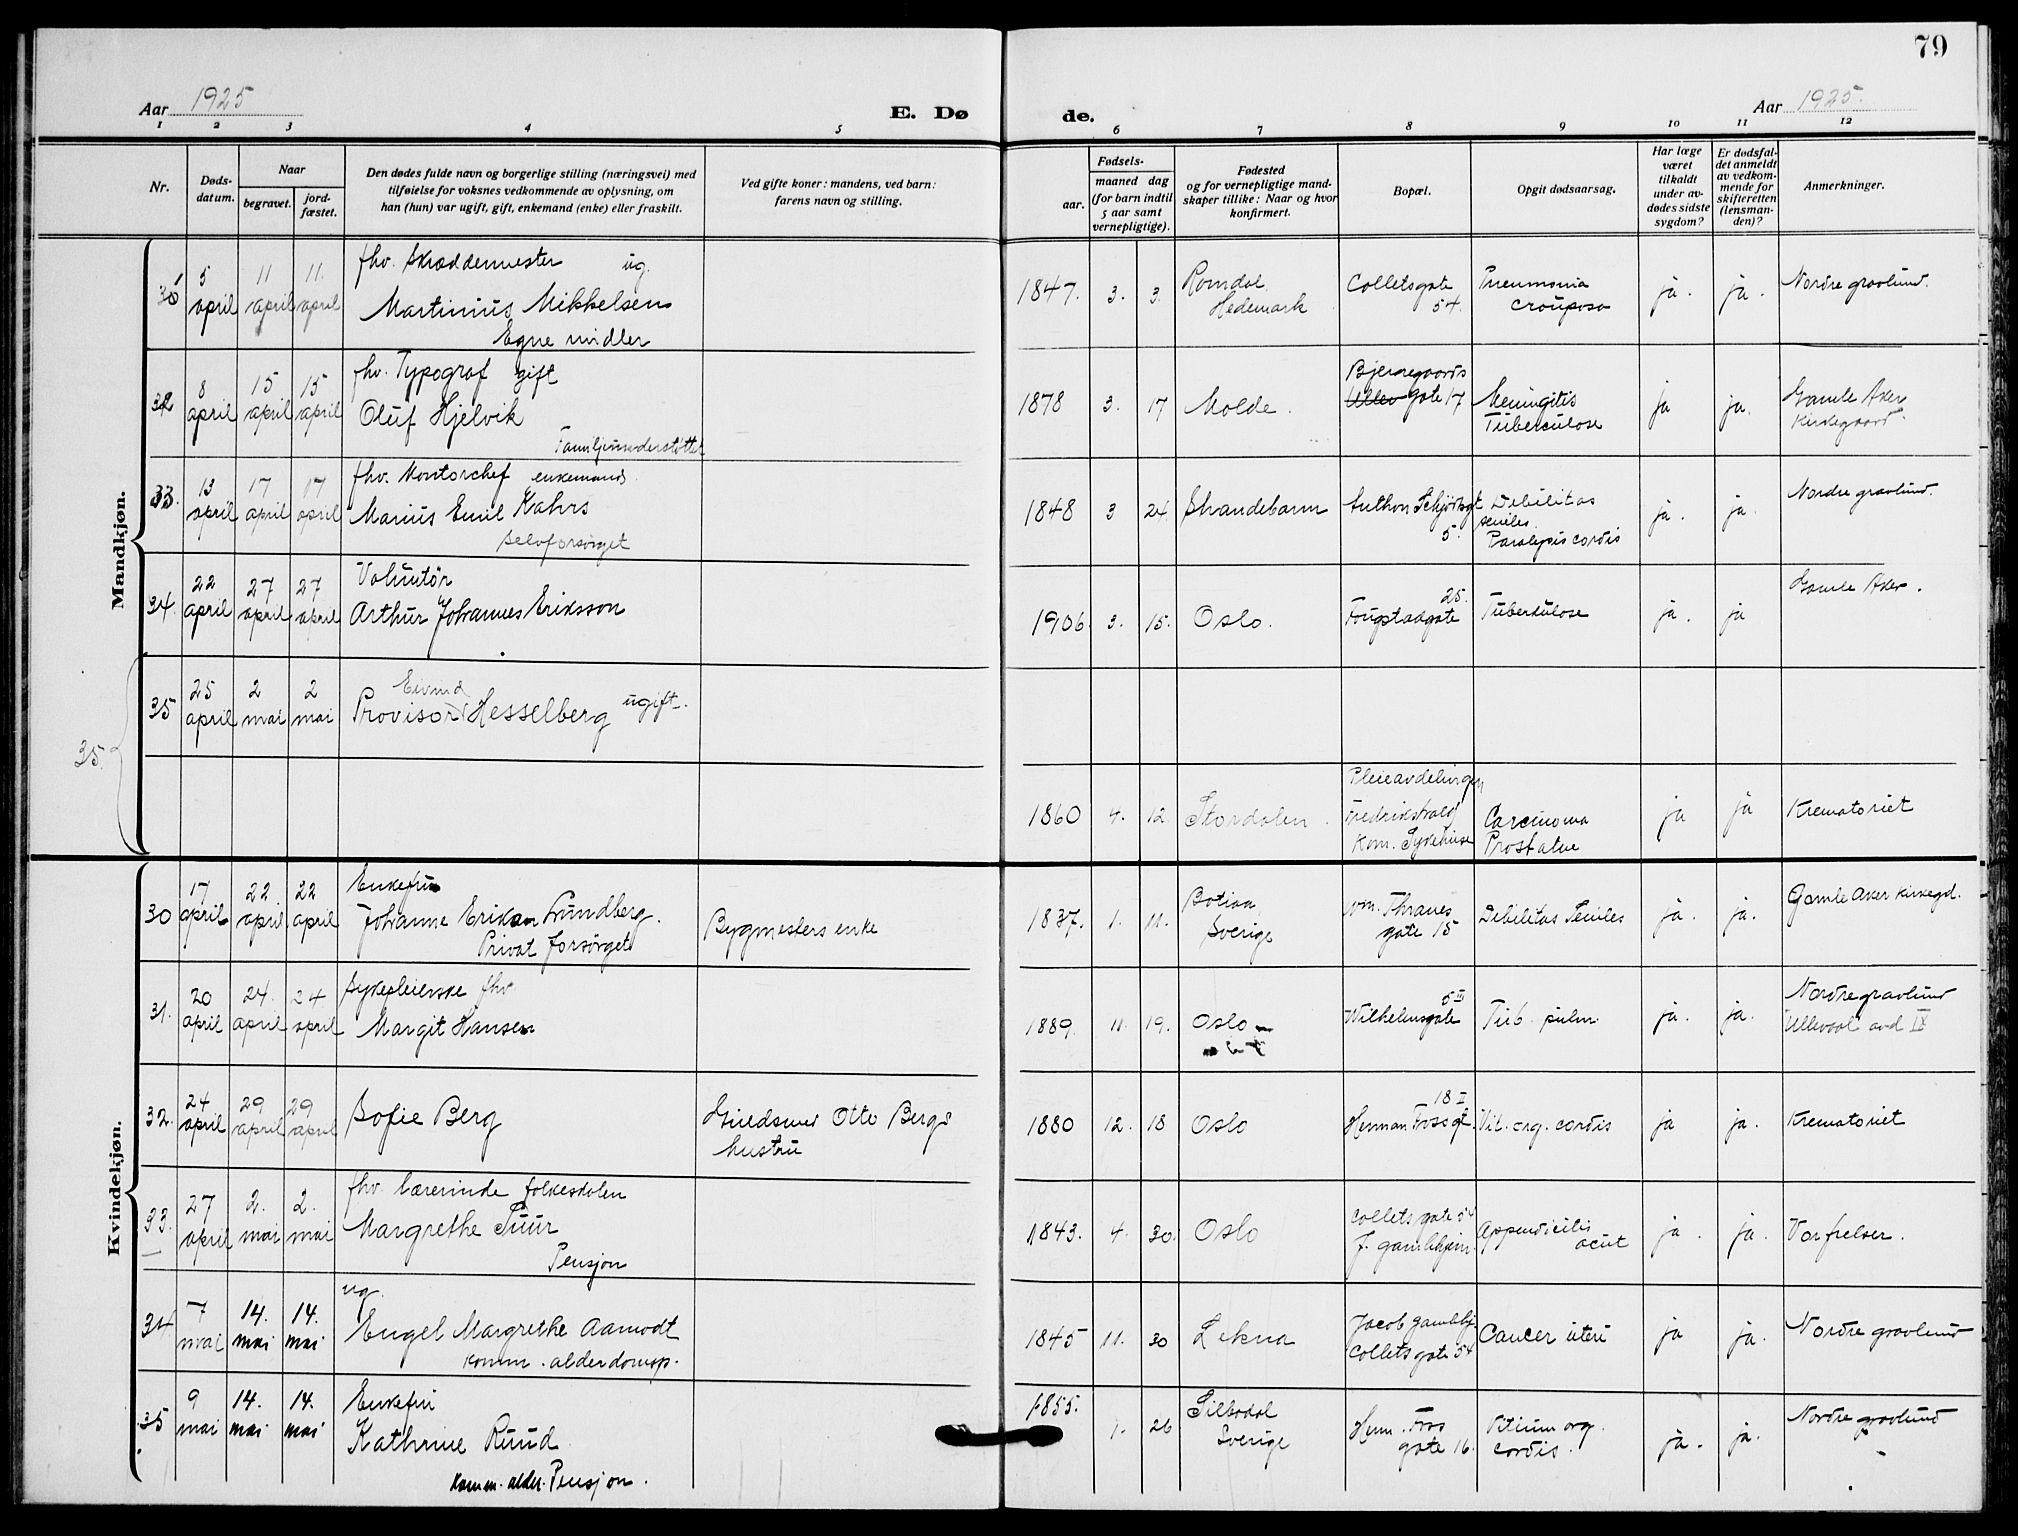 79
Aar 1925 E. Dø de. Aar 1925.
1 2 3 4 5 6 7 8 9 10 11 12
Nr.
Døds-
datum.
Naar
begravet.
jord-
fæstet.
Den dødes fulde navn og borgerlige stilling (næringsvei) med
tilføielse for voksnes vedkommende av oplysning, om
han (hun) var ugift, gift, enkemand (enke) eller fraskilt.
Ved gifte koner: mandens, ved barn:
farens navn og stilling.
Fødsels-
aar.
maaned dag
(for barn indtil
5 aar samt
vernepligtige).
Fødested
og for vernepligtige mand-
skaper tillike: Naar og hvor
konfirmert.
Bopæl.
Opgit dødsaarsag.
Har læge
været
tilkaldt
under av-
dødes sidste
sygdom?
Er dødsfal-
det anmeldt
av vedkom-
mende for
skifteretten
(lensman-
den)?
Anmerkninger.
Mandkjøn.
5 april 11 april 11 april
fhv. Skræddermester ug.
Martinius Mikkelsen
Egne midler
1847. 3. 3. Romdal Hedemark
Colletsgate 54.
Pneumonia crouposa
ja. ja. Nordre gravlund.
32 8 april 15 april 15 april
fhv. Typograf gift
Oluf Hjelvik
Familjeunderstøttet
1878 3. 17 Molde.
Bjerregaards gate 17
Meningitis Tuberculose
ja ja. Gamle Aker Kirkegaard
33. 13 april 17 april 17 april
fhv. Kontorchef enkemand.
Marius Emil Kahrs
Selvforsørget
1848 3 24 Strandebarm
Anthon Schjøthsgt 5.
Debilitas seniles. Paralysis cordis
ja. ja. Nordre gravlund.
34. 22 april 27 april 27 april
Voluntør
Arthur Johannes Eriksson
1906. 3. 15. Oslo.
Fougstadgate 25.
Tuberkulose
ja. ja Gamle Aker.
35 25 april 2 mai 2 mai
Eivind
Provisor Hesselberg ugift.
35.
1860 4. 12. Stordalen.
Pleieavdelingen
Kom. Sykehuse
Carcinoma Prostatae
ja ja Krematoriet
Kvindekjøn.
30 17 april 22 april 22 april
Enkefru
Johanne Eriksen Lundberg.
Privat forsørget
Bygmesters enke
1837. 1. 11. Sverige
Wm. Thranes gate 15
Debilitas Seniles
ja. ja. Gamle Aker kirkegd.
31. 20 april 24. april 24 april
Sykepleierske fhv.
Margit Hansen
1889. 11. 19. Oslo
Wilhelmsgate 5 III
Tub. pulm.
ja. ja. Nordre gravlund
Ullevaal avd IX
32. 24 april 29 april 29 april
Sofie Berg
Guldsmed Otto Bergs
hustru
1880 12. 18 Oslo
Herman Foss gt. 18 I
Vit. org. cordis
ja ja. Krematoriet
33. 27 april 2. mai 2. mai
fhv. lærerinde folkeskolen
Margrethe Tuur
Pensjon
1843. 4. 30. Oslo
Collets gate 54
J. gamlehjem.
Appendicitis acut
ja. ja. Vor frelser.
34 7 mai 14. mai 14. mai
ug.
Engel Margrethe Aamodt
komm. alderdomsp.
1845 11. 30 Lekna
Jacob gamlehj.
Collets gate 54
Cancer uteri
ja ja. Nordre gravlund
35 9 mai 14. mai 14. mai
Enkefru
Kathrine Ruud
Komm. alder. Pensjon.
1855. 1. 26 Silbodal Sverige
Herm. Foss gate 16.
Vitium org. cordis.
ja. ja. Nordre gravlund